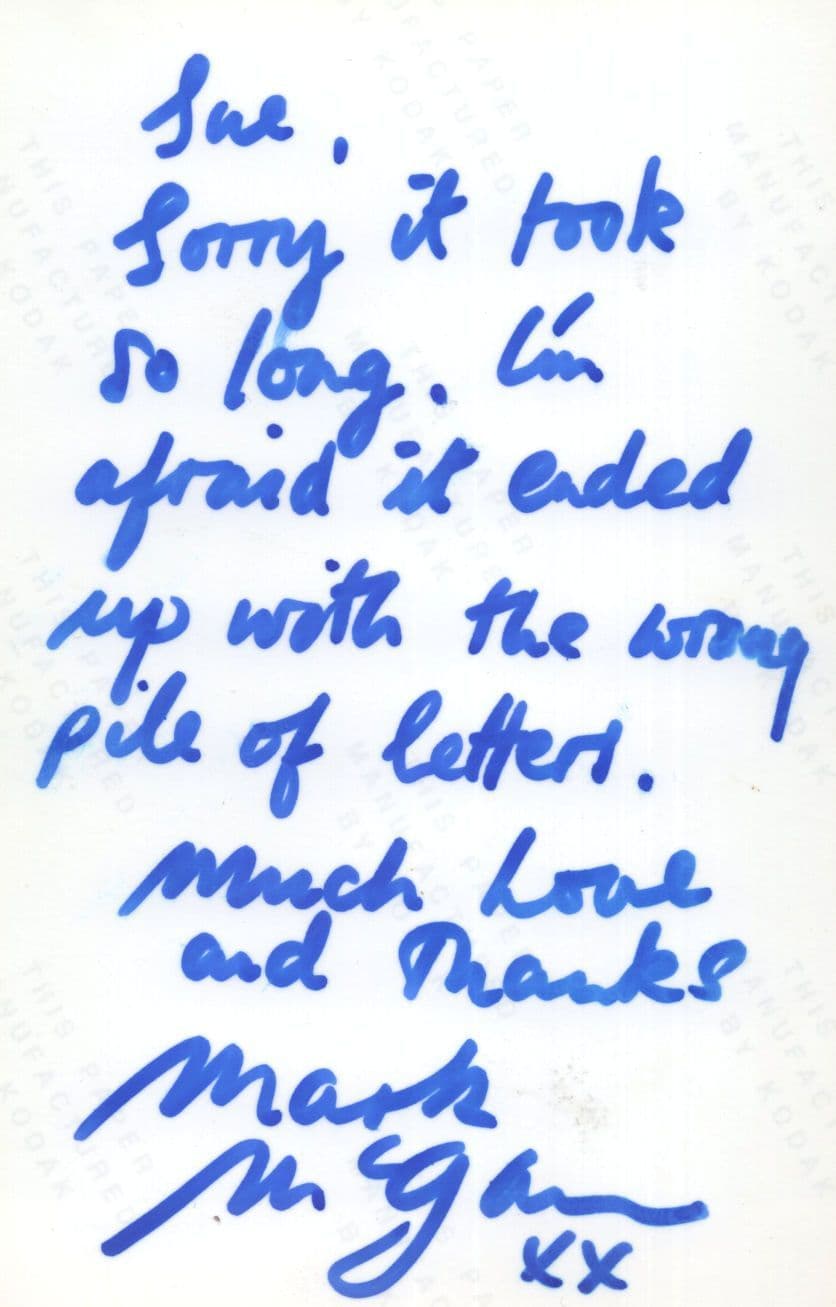 Sue,
Sorry it took
so long. I'm
afraid it ended
up with the wrong
pile of letters.
Much Love
and Thanks
Mark
McGan
xx
THIS PAPER
MANUFACTURED
BY KODAK